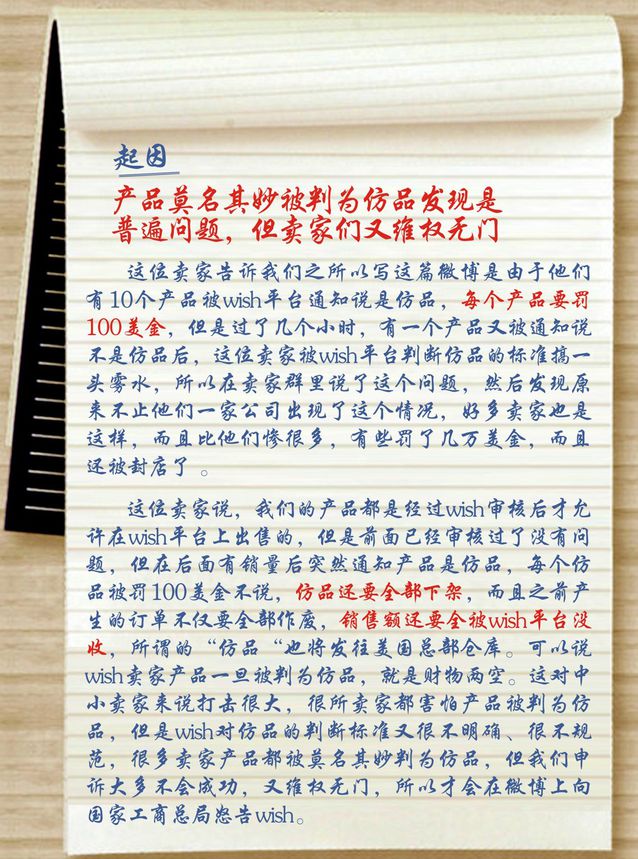 起因
产品莫名其妙被判为仿品发现是
普遍问题，但卖家们又维权无门
这位卖家告诉我们之所以写这篇微博是由于他们
有10个产品被wish平台通知说是仿品，每个产品要罚
100美金，但是过了几个小时，有一个产品又被通知说
不是仿品后，这位卖家被wish平台判断仿品的标准搞一
头雾水，所以在卖家群里说了这个问题，然后发现原
来不止他们一家公司出现了这个情况，好多卖家也是
这样，而且比他们惨很多，有些罚了几万美金，而且
还被封店了 。
这位卖家说，我们的产品都是经过wish审核后才允
许在wish平台上出售的，但是前面已经审核过了没有问
题，但在后面有销量后突然通知产品是仿品，每个仿
品被罚100美金不说，仿品还要全部下架，而且之前产
生的订单不仅要全部作废，销售额还要全被wish平台没
收，所谓的“仿品“也将发往美国总部仓库。可以说
wish卖家产品一旦被判为仿品，就是财物两空。这对中
小卖家来说打击很大，很所卖家都害怕产品被判为仿
品，但是wish对仿品的判断标准又很不明确、很不规
范，很多卖家产品都被莫名其妙判为仿品，但我们申
诉大多不会成功，又维权无门，所以才会在微博上向
国家工商总局怒告wish。